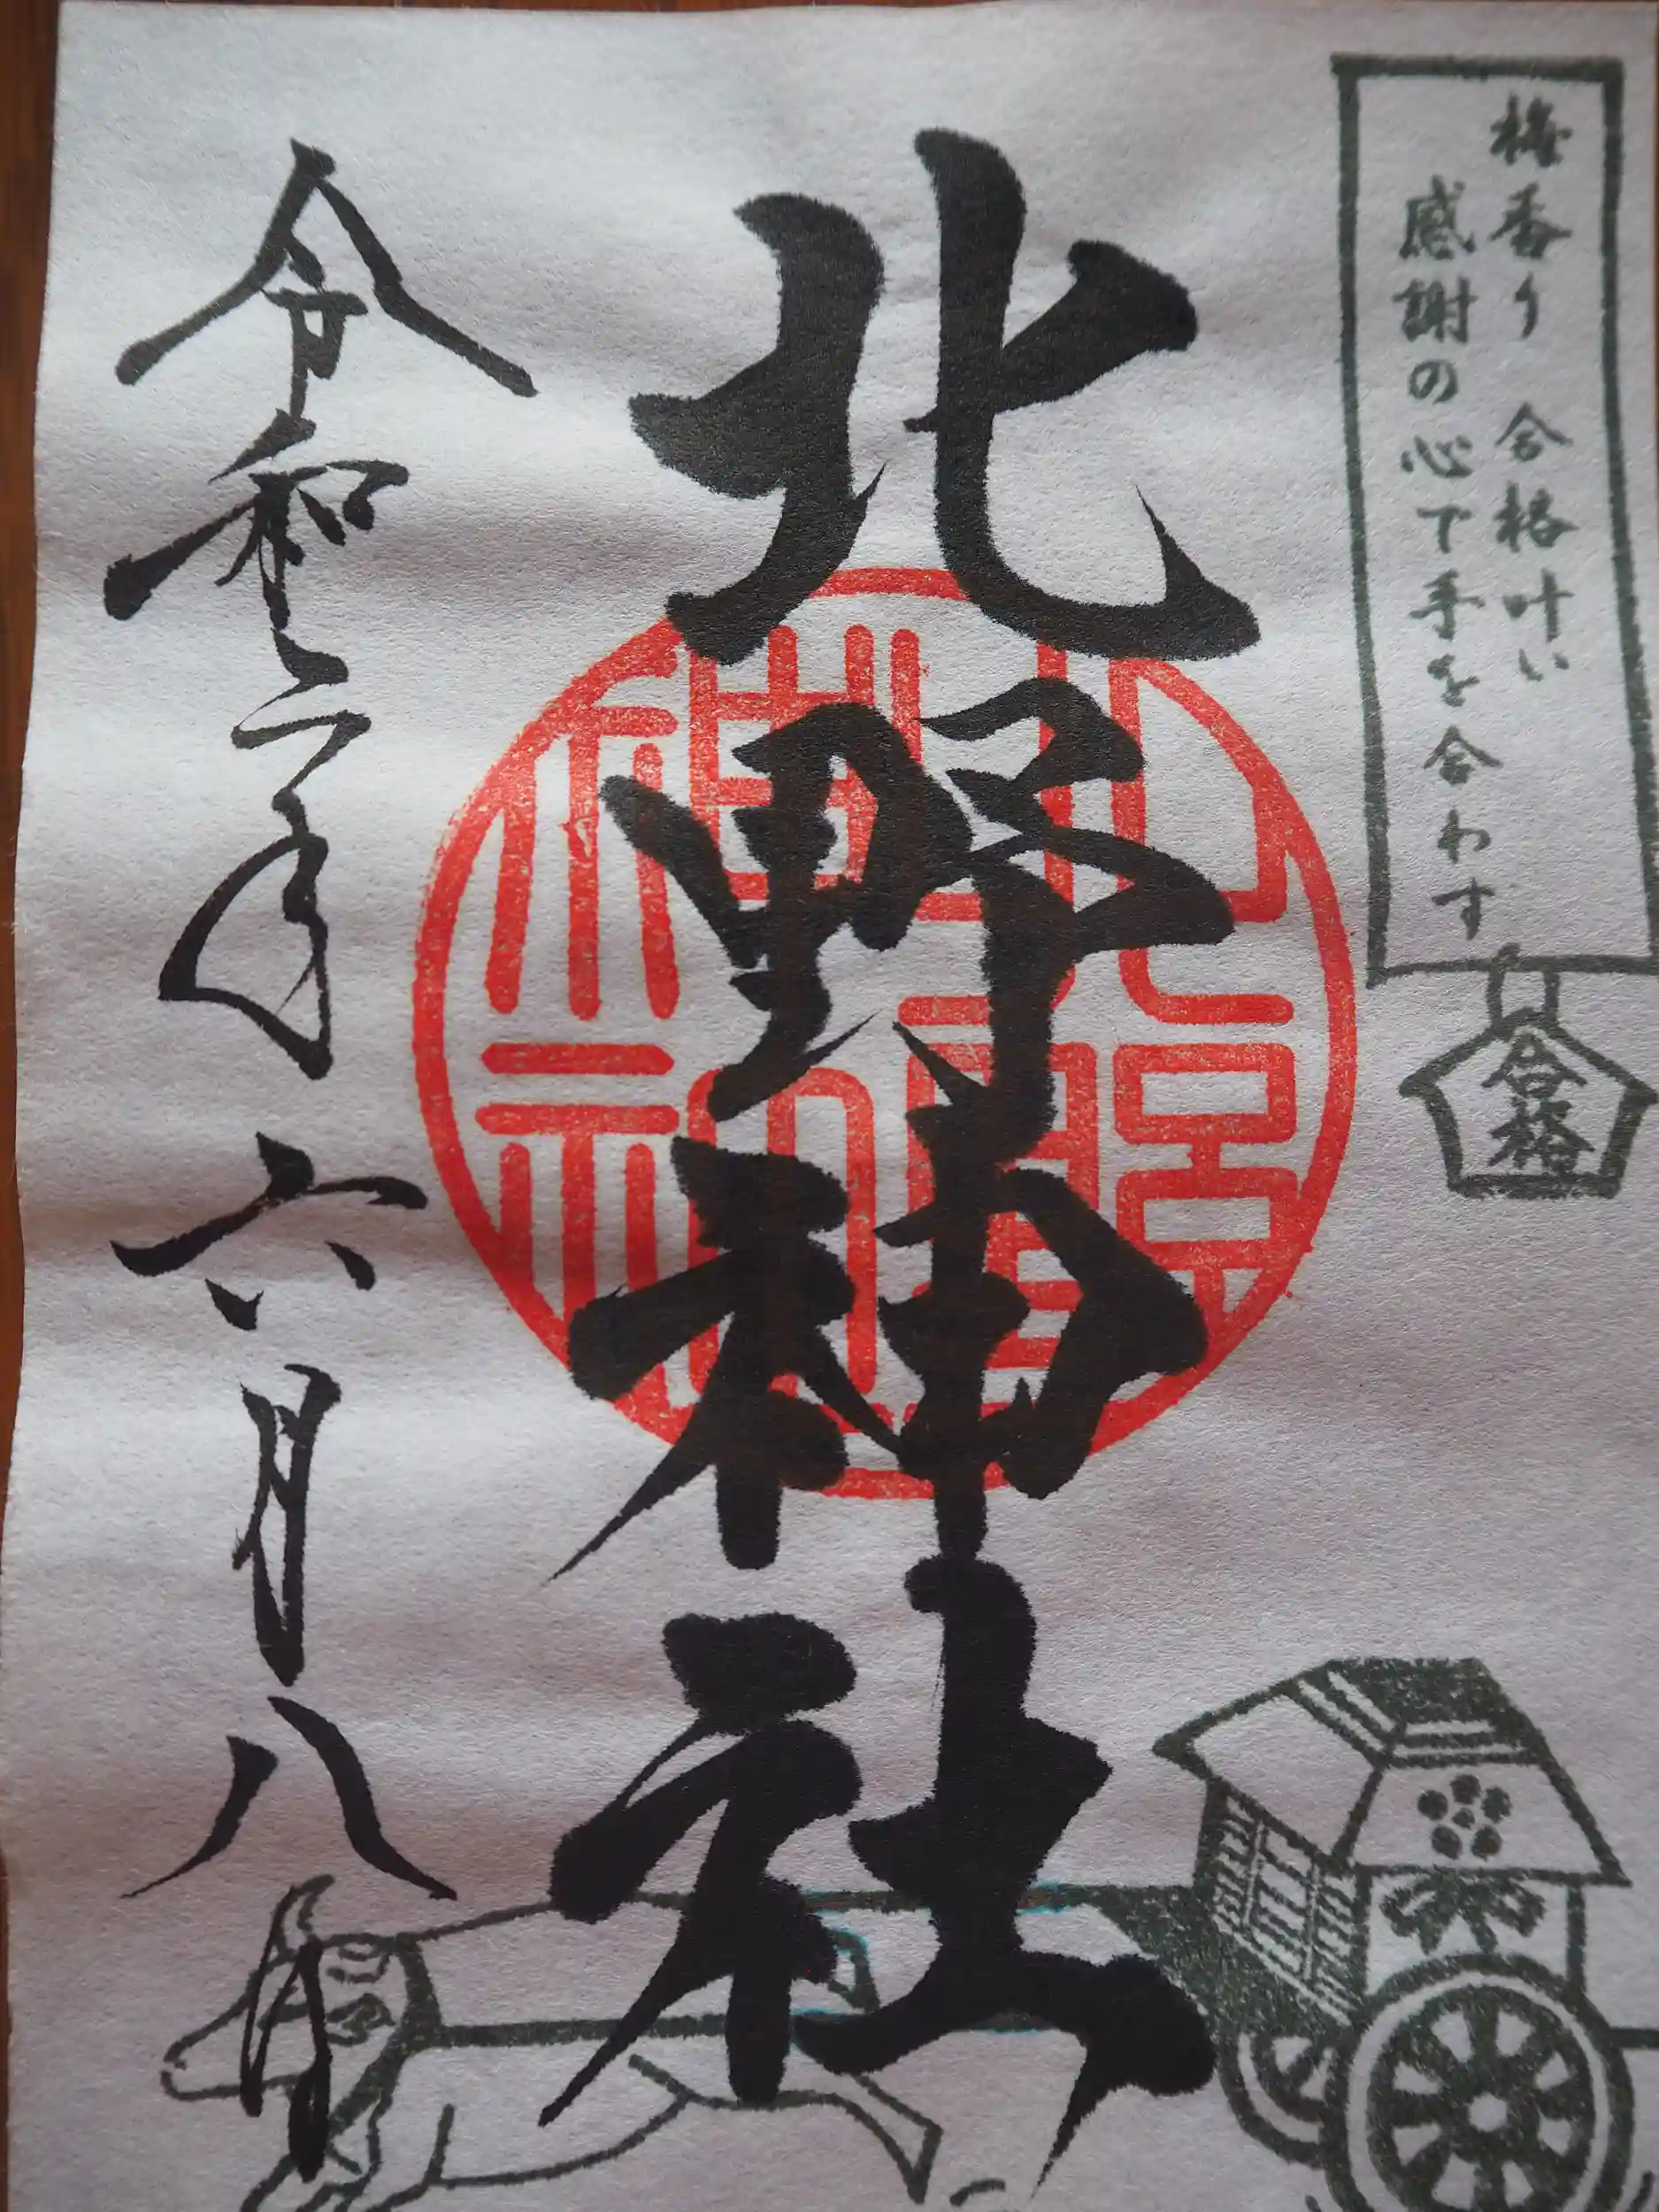 梅香り 合格叶い
感謝の心で手を合わす
合格
北野神社
令和二年六月八日